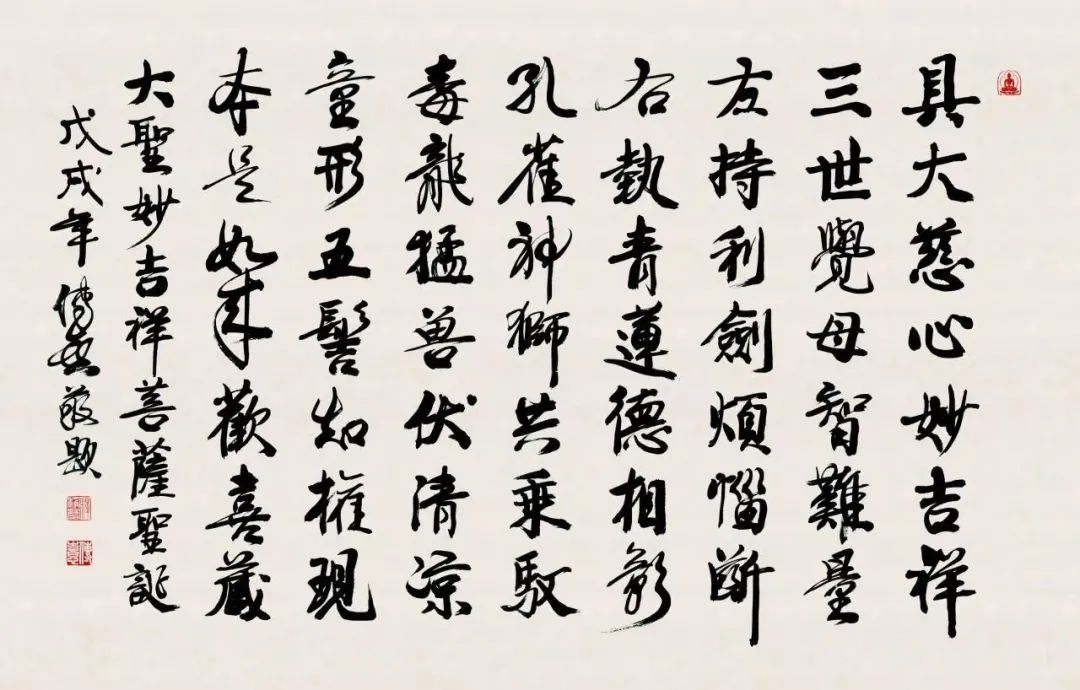 具大慈心妙吉祥
三世覺母智難量
左持利劍煩惱斷
右執青蓮德相彰
孔雀神獅共乘馭
毒龍猛兽伏清涼
童形五髻知權現
本是如来歡喜藏
大聖妙吉祥菩薩聖誕
戊戌年 傳喜敬題